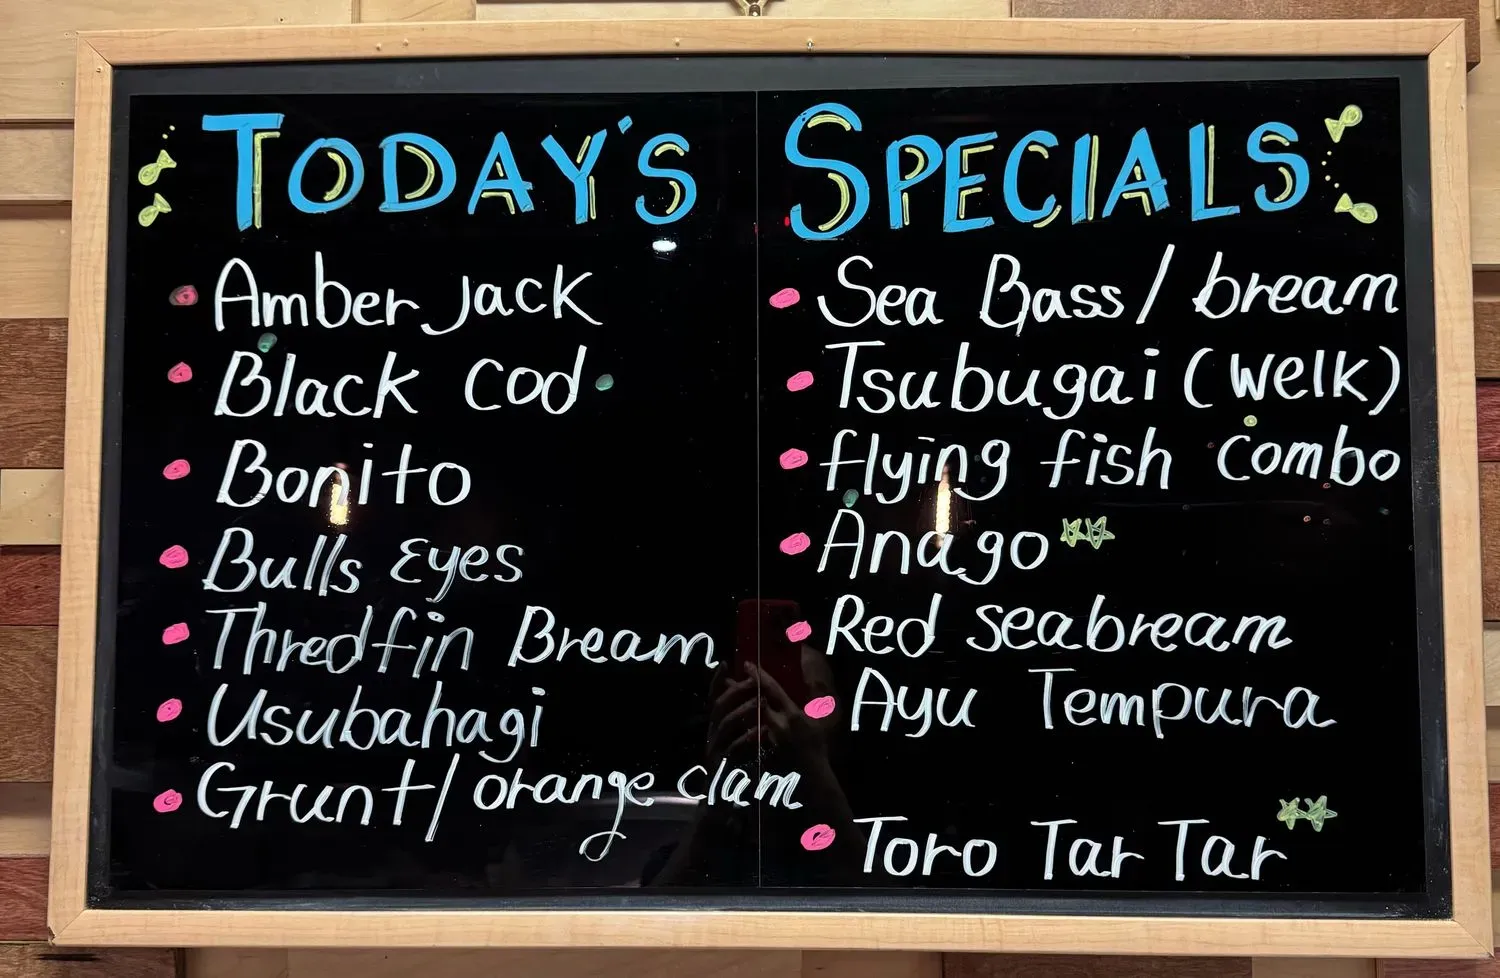 TODAY'S SPECIALS
Amber jack
Black cod
Bonito
Bulls Eyes
Thredfin Bream
Usubahagi
Grunt/orange clam
Sea Bass/bream
Tsubugai (welk)
flying fish combo
Anago
Red seabream
Ayu Tempura
Toro Tar Tar